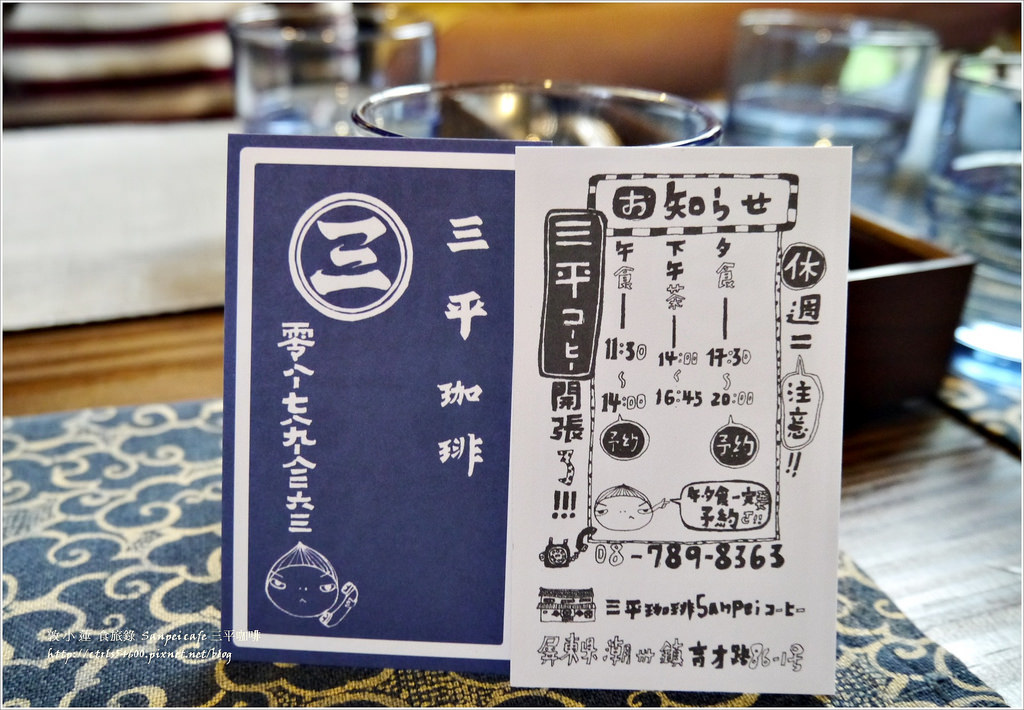 三
三平珈琲
零八-七八九八三六三
お知らせ
三平コーヒー
開張了!!!
午食
11:30
14:00
予約
下午茶
14:00
16:45
夕食
17:30
20:00
予約
休週二
注意!!
午夕食一定要
予約
08-789-8363
三平珈琲Sanpeiコーヒー
屏東県潮州鎮育才路86-1号
敦小蓮 食旅錄 Sanpei cafe 三平咖啡